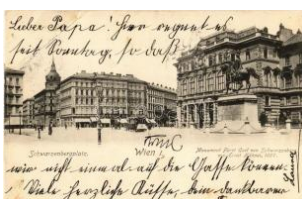 Lieber Papa! Hier regnet es
seit Sonntag, so daß
Schwarzenbergplatz.
Wien I.
Monument Fürst Carl von Schwarzenberg
wir nicht einmal auf die Gasse können.
Viele herzliche Küsse, Dein dankbarer